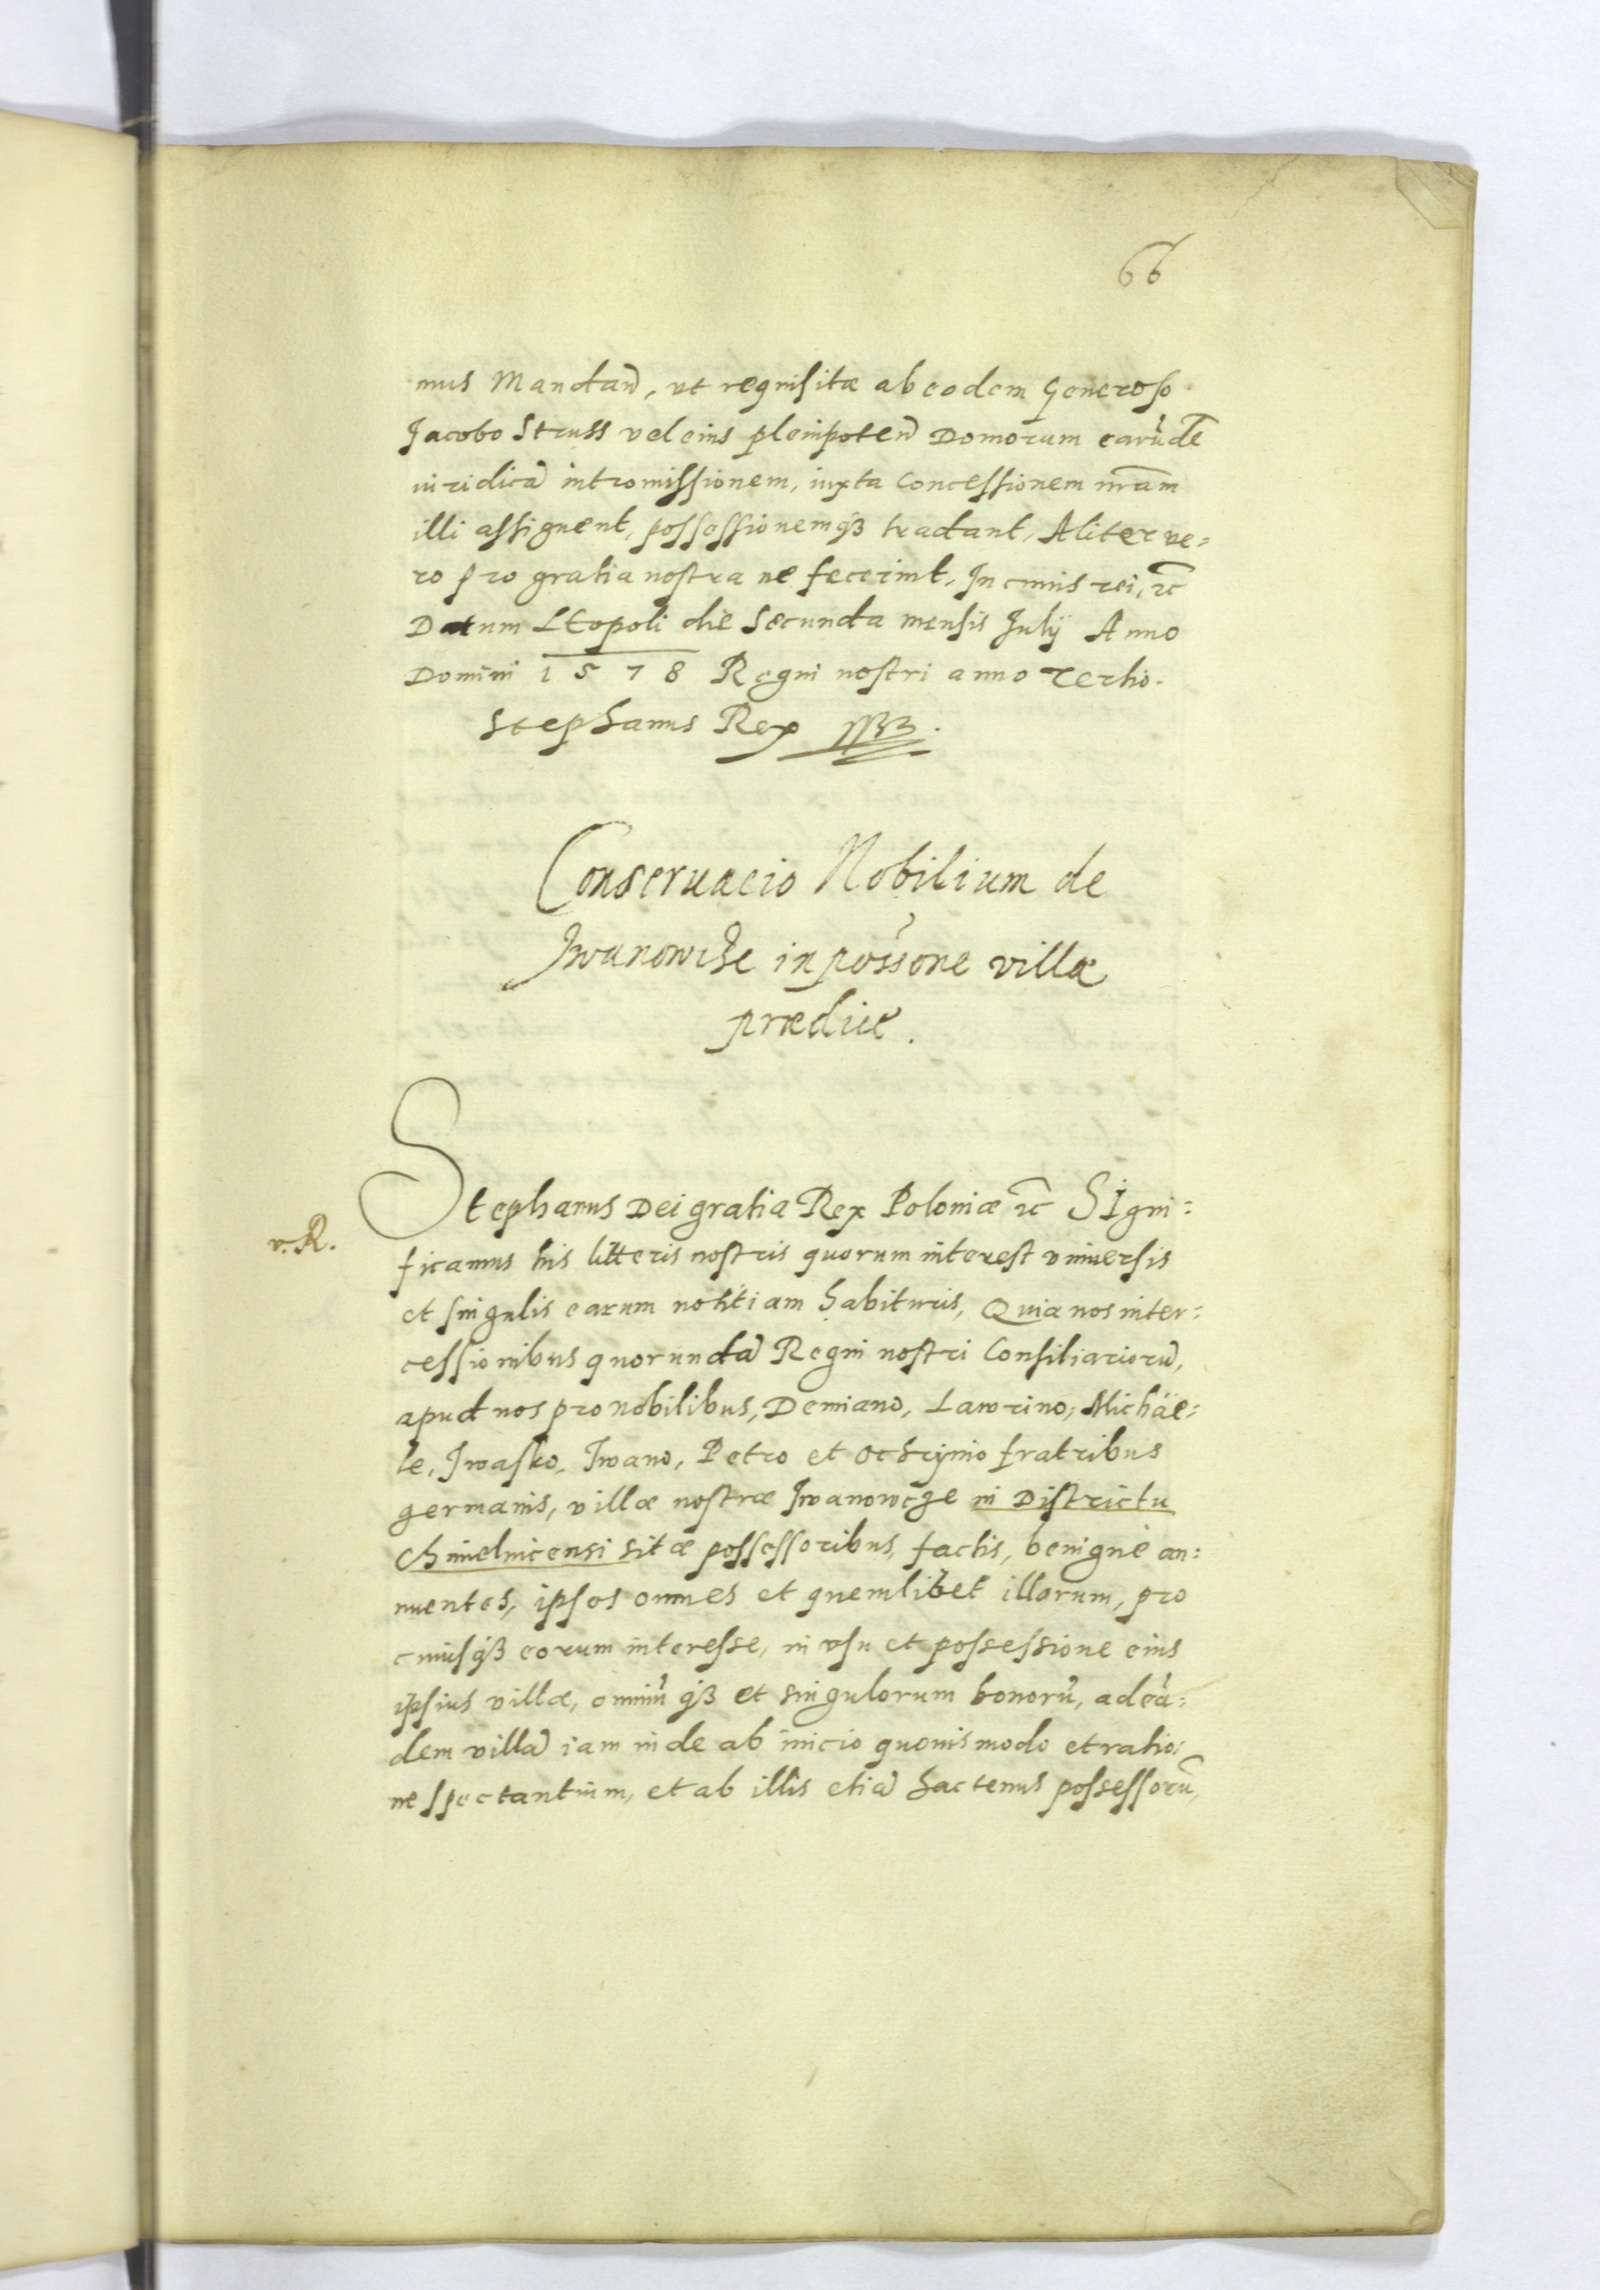 66
mus Mandan̄, ut requisitæ ab eodem Generoso
Jacobo Struss vel eius plenipoten̄ Domorum earūdē
iuridicā intromissionem, iuxta Concessionem nr̄am
illi assignent, possessionemqȝ tradant, Aliter ve=
ro pro gratia nostra ne fecerint, In cuius rei, ꝛc̄
Datum LEopoli die Secunda mensis Julÿ Anno
Domini 1578 Regni nostri anno Tertio.
Stephanus Rex
Conservacio Nobilium de
Iwanowcze in possone villæ
prædicē.
Stephanus Dei gratia Rex Poloniæ ꝛc̄ SIgni=
v. R.
ficamus his litteris nostris quorum interest universis
et singulis earum notitiam habituris, Quia nos inter=
cessionibus quorundā Regni nostri Consiliariorū,
apud nos pro nobilibus, Demiano, Lawrino, Michäe=
le, Iwasko, Iwano, Petro et Ochrÿmo fratribus
germanis, villæ nostræ Iwanowcze in Districtu
Chmielnicensi sitæ possessoribus, factis, benignè an=
nuentes, ipsos omnes et quemlibet illorum, pro
cuiusqȝ eorum interesse, in usu et possessione eius
ipsius villæ, omniū qȝ et singulorum bonorū, ad eā=
dem villā iam inde ab inicio quovis modo et ratio=
ne spectantium, et ab illis etiā hactenus possessorū,